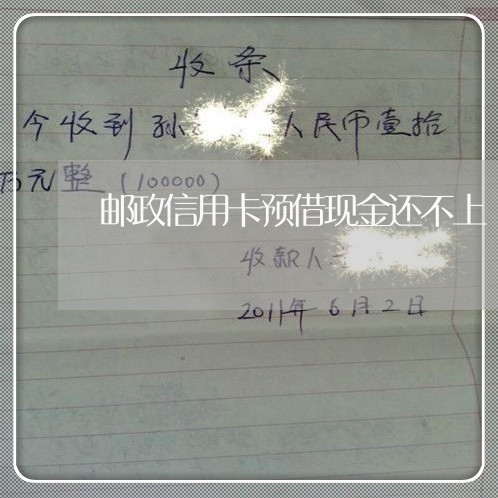 收条
今收到孙人民币壹拾
万元整(100000)
邮政信用卡预借现金还不上
收款人
2011年6月2日